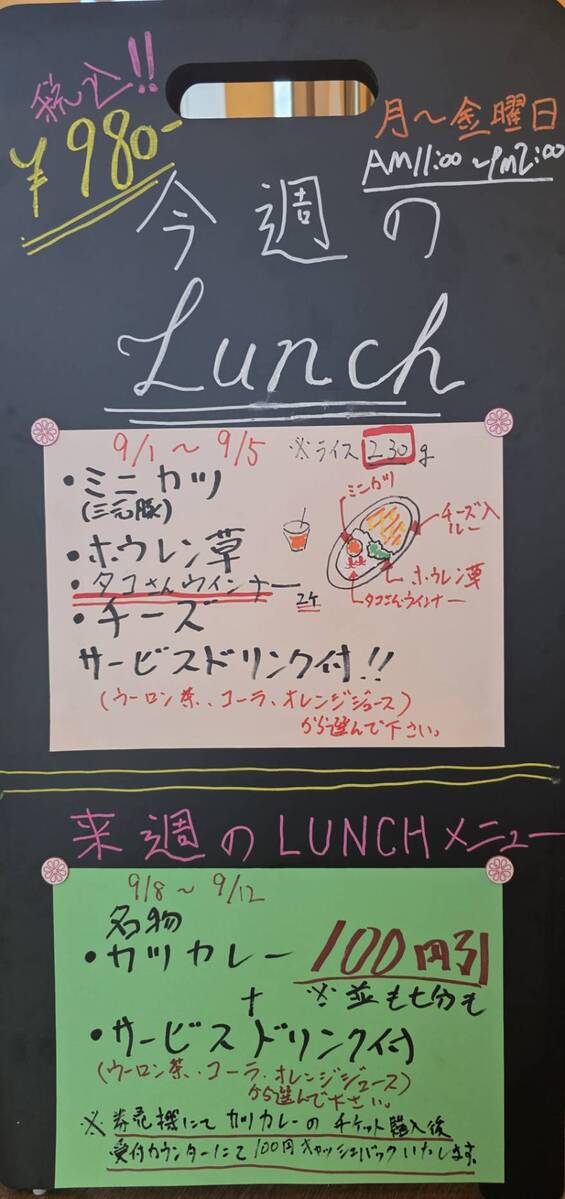 税込!!
¥980-
月～金曜日
AM11:00～PM2:00
今週の
Lunch
9/1～9/5
※ライス230g
・ミニカツ
(三元豚)
・ホウレン草
・タコさんウインナー
2ケ
・チーズ
ミニカツ
チーズ入
ルー
ホウレン草
タコさんウインナー
サービスドリンク付!!
(ウーロン茶、コーラ、オレンジジュース)
から選んで下さい。
来週のLUNCHメニュー
9/8～9/12
名物
・カツカレー
100円引
※並も七分も
+
・サービスドリンク付
(ウーロン茶、コーラ、オレンジジュース)
から選んで下さい。
※券売機にてカツカレーのチケット購入後
受付カウンターにて100円キャッシュバックいたします。